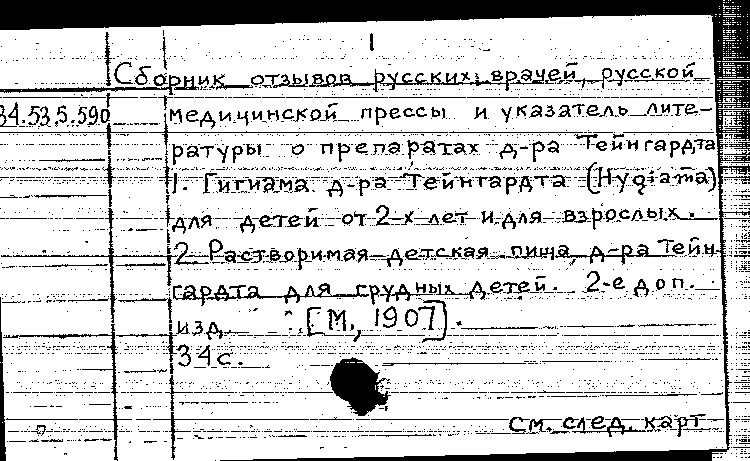 1
Сборник отзывов русских врачей, русской
34.53.5.590 медицинской прессы и указатель лите-
ратуры о препаратах д-ра Тейнгардта
1. Гигиама д-ра Тейнгардта (Hygiama)
для детей от 2-х лет и для взрослых.
2. Растворимая детская пища, д-ра Тейн-
гардта для грудных детей. 2-е доп.
изд. [М., 1907].
34 с.
См. след. карт